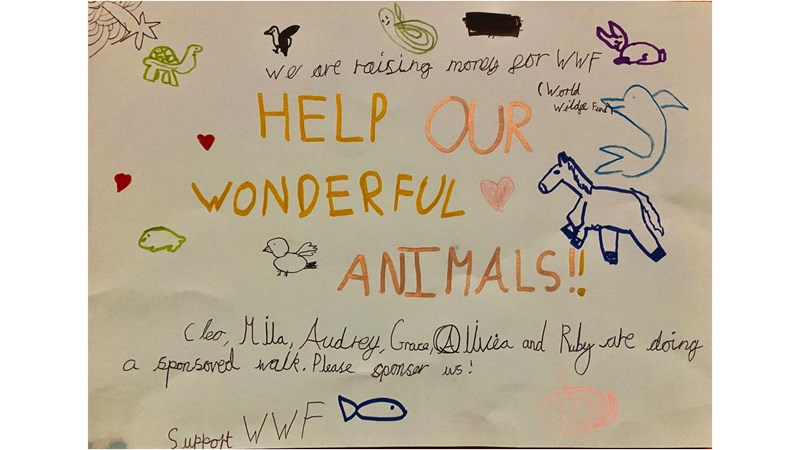 We are raising money for WWF
(World
Wildge Fund)
HELP OUR
WONDERFUL
ANIMALS!!
Cleo, Mila, Audrey, Grace, Alivia and Ruby are doing
a sponsored walk. Please sponser us!
Support WWF